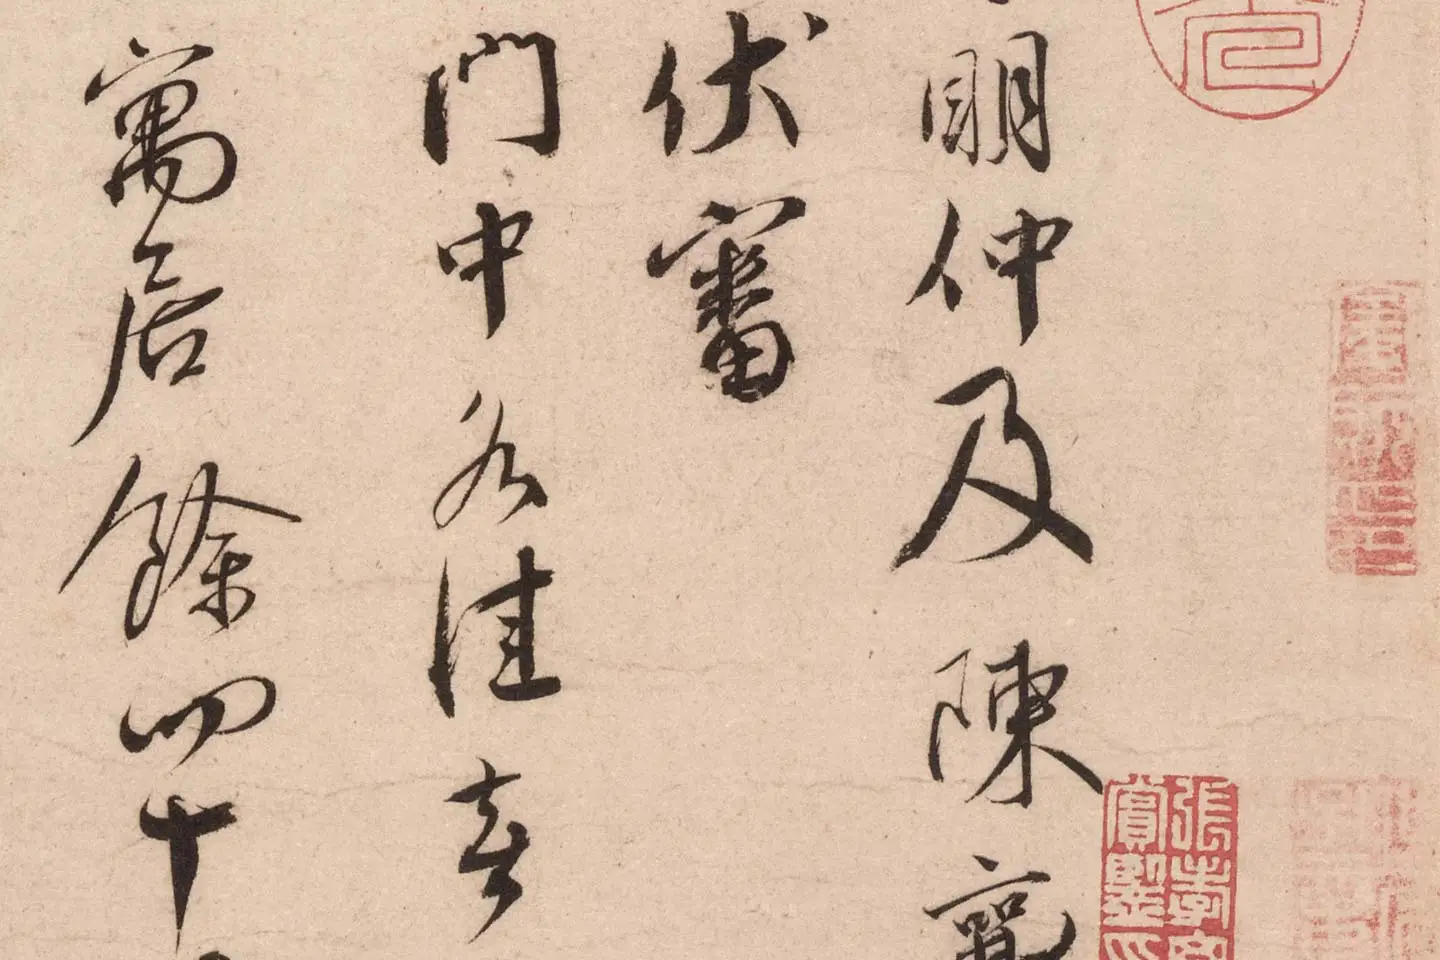 明仲及陳
伏審
門中各佳喜
寓居餘四十
張孝
賞鑒